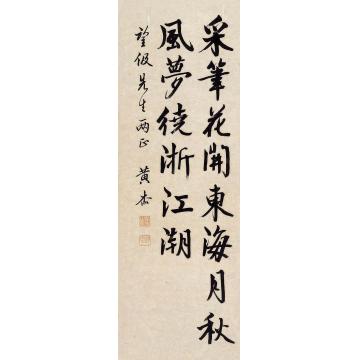 采筆花開東海月秋
風夢繞浙江潮
望假先生两正 黄杰